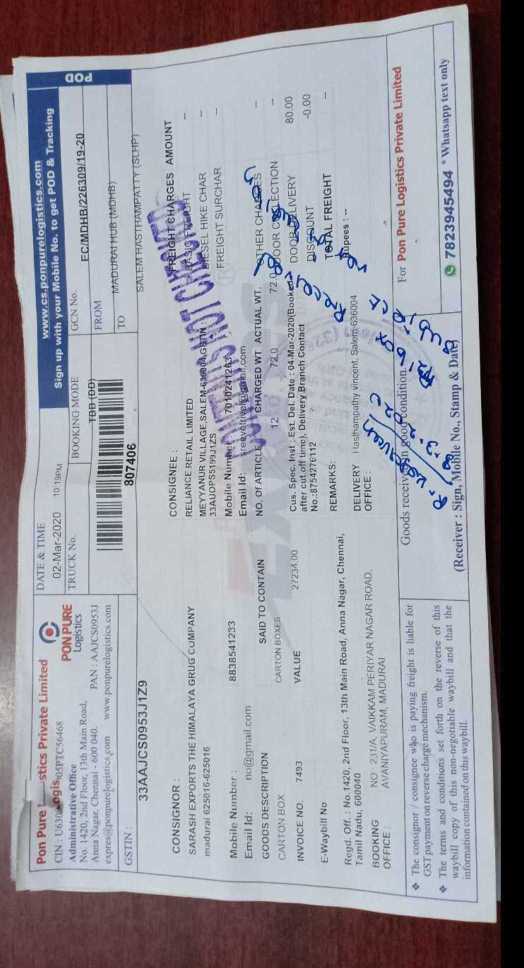 Pon Pure Logistics Private Limited
CIN : 05PTC56468
Administrative Office
No. 1420, 2nd Floor, 13th Main Road,
Anna Nagar, Chennai - 600 040. PAN : AAJCS0953J
express@ponpurelogistics.com www.ponpurelogistics.com
PON PURE
Logistics
DATE & TIME
02-Mar-2020 10:19PM
TRUCK No.
www.cs.ponpurelogistics.com
Sign up with your Mobile No. to get POD & Tracking
POD
BOOKING MODE
TBB (DD)
GCN No.
EC/MDHB/226309/19-20
FROM
MADURAI HUB (MDHB)
TO
SALEM HASTHAMPATTY (SLHP)
807406
GSTIN :
33AAJCS0953J1Z9
CONSIGNOR :
SARASH EXPORTS THE HIMALAYA GRUG COMPANY
madurai 625016-625016
Mobile Number : 8838541233
Email Id: no@gmail.com
CONSIGNEE :
RELIANCE RETAIL LIMITED
MEYYANUR VILLAGE,SALEM-
33AUOPS5199J1ZS
Mobile Number
Email Id:
CONTENTS NOT CHECKED
FREIGHT CHARGES AMOUNT
DIESEL HIKE CHAR --
FREIGHT SURCHAR --
OTHER CHARGES --
DOOR COLLECTION --
DOOR DELIVERY 80.00
DISCOUNT -0.00
TOTAL FREIGHT
Rupees : --
GOODS DESCRIPTION SAID TO CONTAIN NO. Of ARTICLE CHARGED WT ACTUAL WT.
CARTON BOX CARTON BOXES 12 72.0 72.0
INVOICE NO. VALUE
7493 27234.00
Cus. Spec. Inst . Est. Del. Date : 04-Mar-2020(Booked
after cut off time), Delivery Branch Contact
No.:8754776112
E-Waybill No
REMARKS:
Regd. Off. : No.1420, 2nd Floor, 13th Main Road, Anna Nagar, Chennai,
Tamil Nadu, 600040
BOOKING OFFICE : NO :231/A, VAIKKAM PERIYAR NAGAR ROAD,
AVANIYAPURAM, MADURAI
DELIVERY OFFICE : Hasthampathy vincent, Salem-636004
❖ The consignor / consignee who is paying freight is liable for
GST payment on reverse charge mechanism.
❖ The terms and conditions set forth on the reverse of this
waybill copy of this non-negotiable waybill and that the
information contained on this waybill.
Goods received in good condition.
Received
box
(Receiver : Sign, Mobile No., Stamp & Date)
For Pon Pure Logistics Private Limited
7823945494 * Whatsapp text only